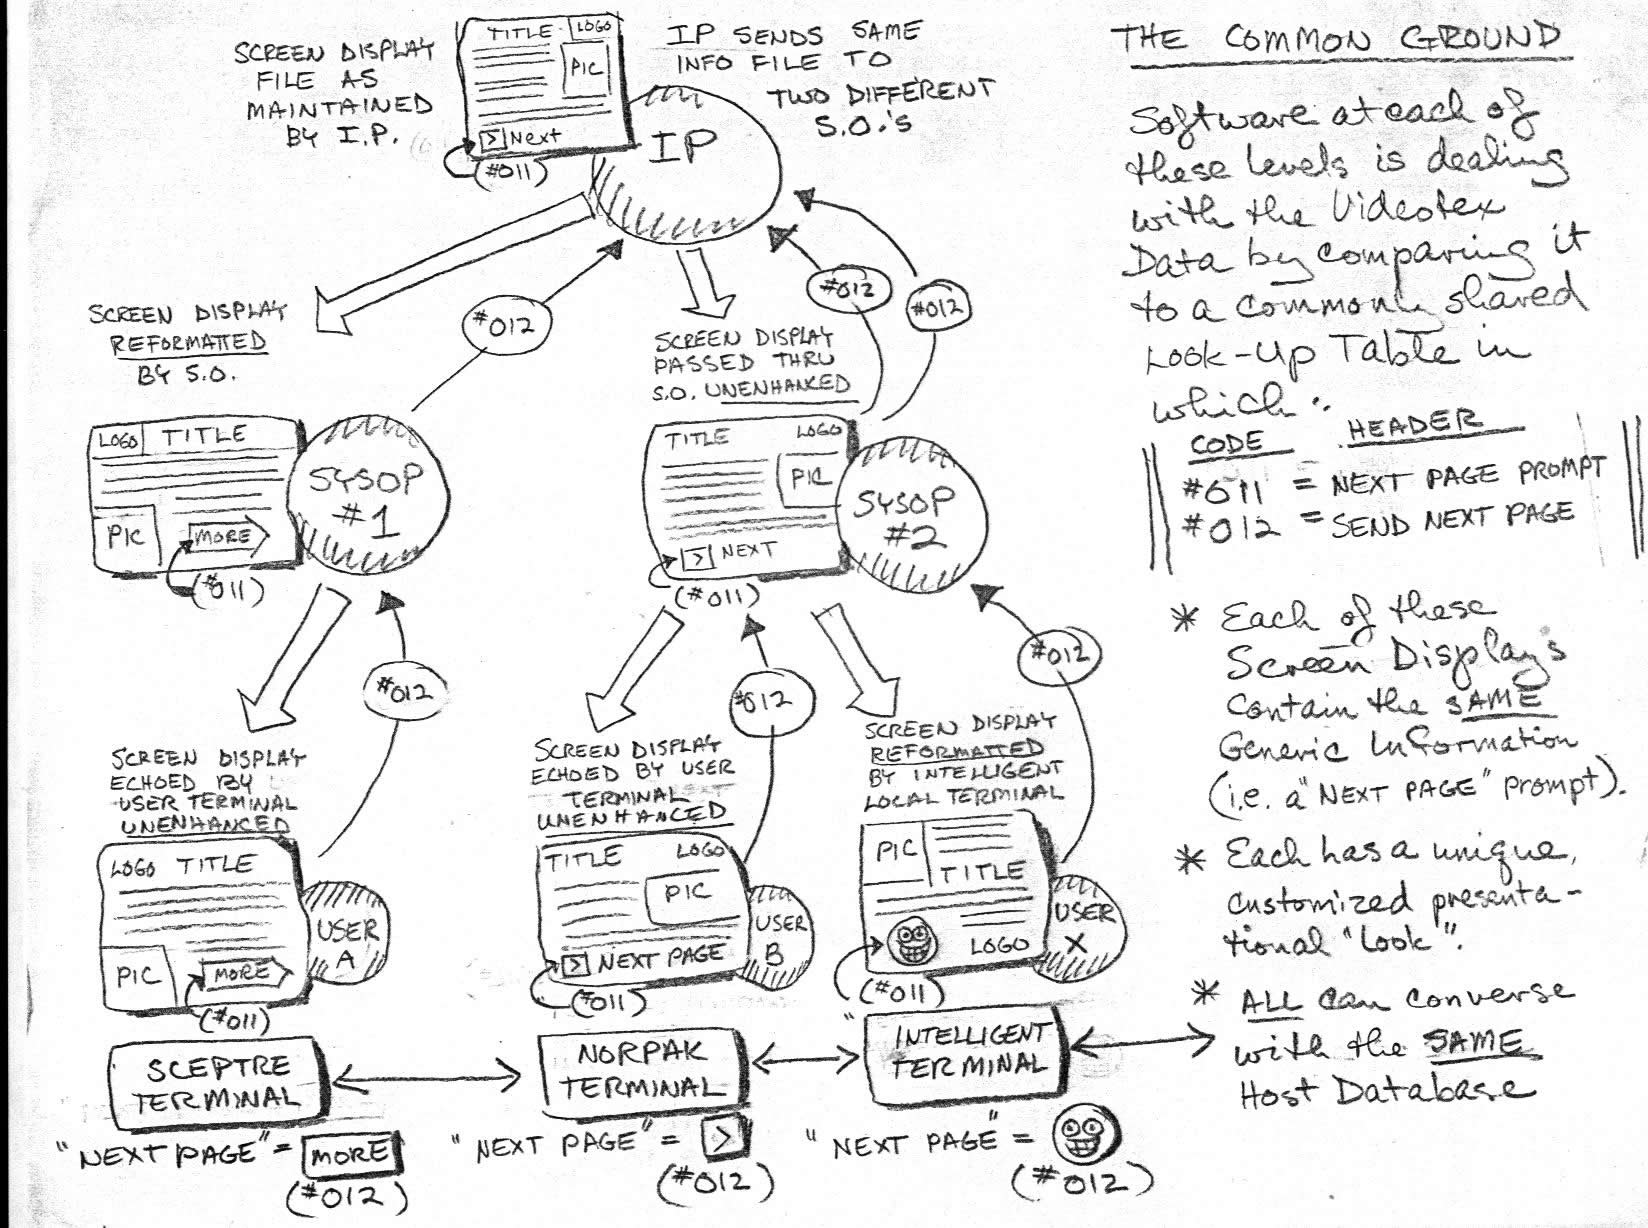 SCREEN DISPLAY
FILE AS
MAINTAINED
BY I.P.
TITLE LOGO
PIC
> Next
(#011)
IP
IP SENDS SAME
INFO FILE TO
TWO DIFFERENT
S.O.'s
#012
#012
#012
SCREEN DISPLAY
REFORMATTED
BY S.O.
LOGO TITLE
PIC
MORE
(#011)
SYSOP
#1
SCREEN DISPLAY
PASSED THRU
S.O. UNENHANCED
TITLE LOGO
PIC
> NEXT
(#011)
SYSOP
#2
#012
#012
#012
SCREEN DISPLAY
ECHOED BY
USER TERMINAL
UNENHANCED
LOGO TITLE
PIC
MORE
(#011)
USER
A
SCREEN DISPLAY
ECHOED BY USER
TERMINAL
UNENHANCED
TITLE LOGO
PIC
> NEXT PAGE
(#011)
USER
B
SCREEN DISPLAY
REFORMATTED
BY INTELLIGENT
LOCAL TERMINAL
PIC
TITLE
LOGO
(#011)
USER
X
SCEPTRE
TERMINAL
"NEXT PAGE" = MORE
(#012)
NORPAK
TERMINAL
"NEXT PAGE" = >
(#012)
INTELLIGENT
TERMINAL
"NEXT PAGE" =
(#012)
THE COMMON GROUND
Software at each of
these levels is dealing
with the Videotex
Data by comparing it
to a commonly shared
Look-Up Table in
which:
CODE HEADER
#011 = NEXT PAGE PROMPT
#012 = SEND NEXT PAGE
* Each of these
Screen Displays
contain the SAME
Generic Information
(i.e. a "NEXT PAGE" prompt).
* Each has a unique,
customized presenta-
tional "Look".
* ALL can converse
with the SAME
Host Database